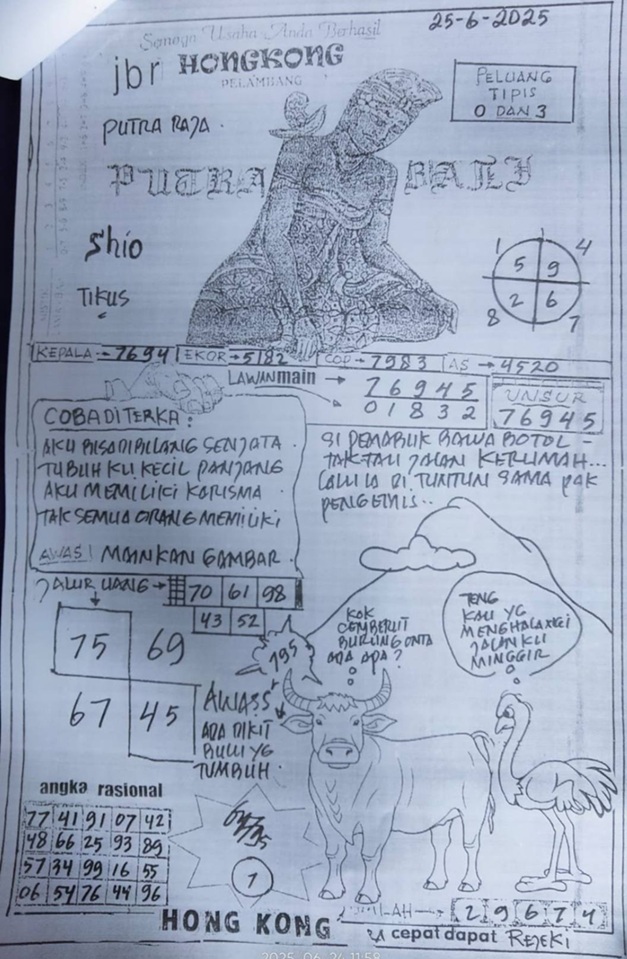 25-6-2025
Semoga Usaha Anda Berhasil
jbr HONGKONG
PELAMBANG
PELUANG
TIPIS
0 DAN 3
PUTRA RAJA.
PUTRA BALI
Shio
TIKUS
1 4
5 9
2 6
8 7
KEPALA → 7694 EKOR → 5182 COP → 7983 AS → 4520
LAWAN main → 76945
01832
UNSUR
76945
COBA DI TERKA:
AKU BISA DIBILANG SENJATA
TUBUH KU KECIL PANJANG
AKU MEMILIKI KARISMA
TAK SEMUA ORANG MEMILIKI
AWAS! MAINKAN GAMBAR
SI PEMABUK BAWA BOTOL -
TAK TAU JALAN KERUMAH...
LALU IA DI TUNTUN SAMA PAK
PENGEMIS..
JALUR UANG → 70 61 98
43 52
75 69
67 45
195
KOK
CEMBERUT
BURUNG ONTA
ADA APA?
TENG
KAU YG
MENGHALANGI
JALAN KU
MINGGIR
AWASS
ADA DIKIT
BULU YG
TUMBUH.
angka rasional
77 41 91 07 42
48 66 25 93 89
57 34 99 16 55
06 54 76 44 96
7
JUMLAH → 2 9 6 7 4
HONG KONG
cepat dapat REJEKI
2025 06 24 11:58